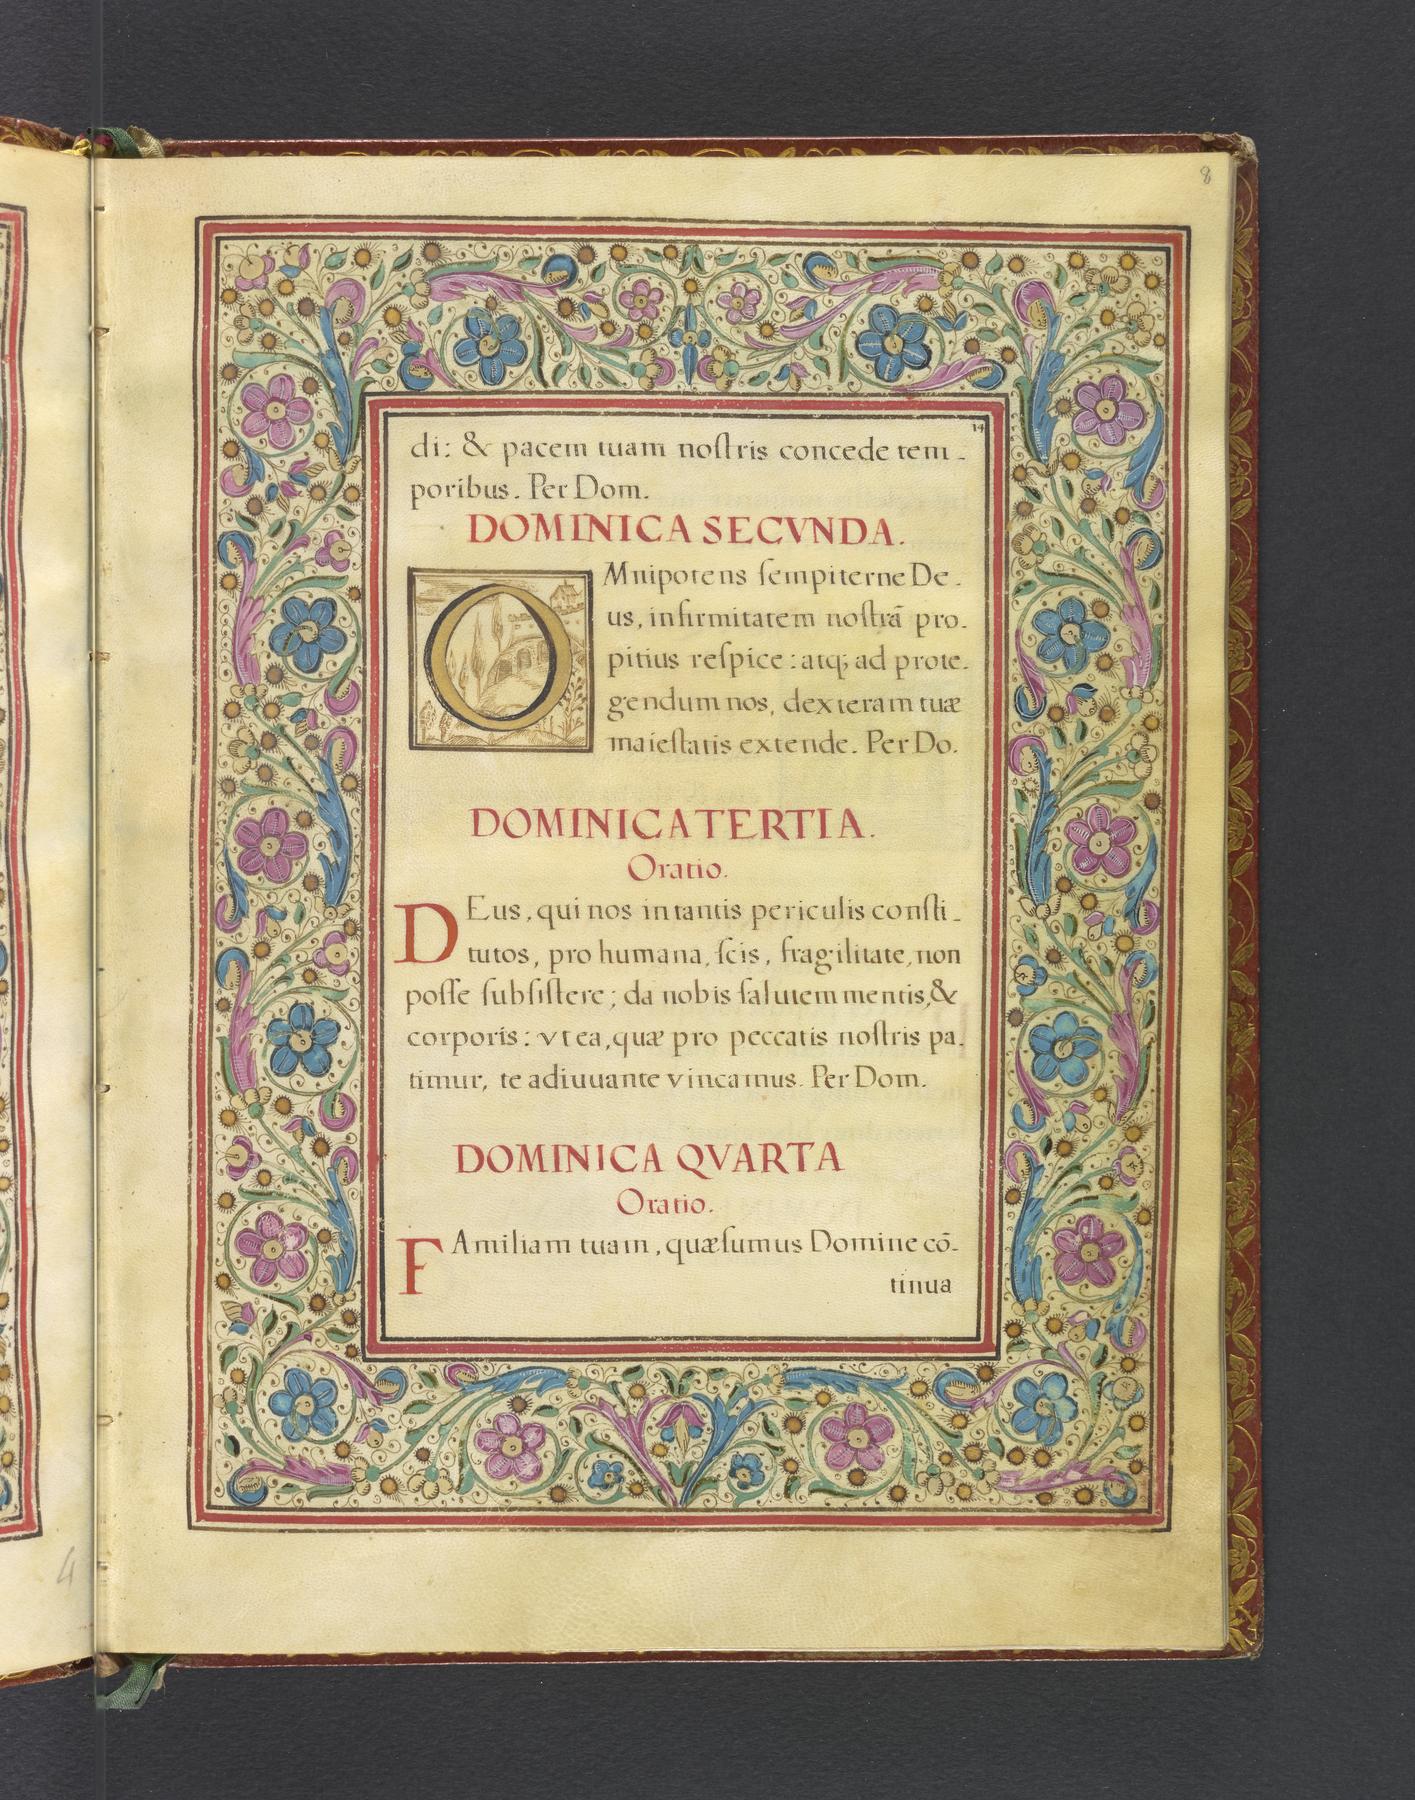 8
14
di: & pacem tuam noſtris concede tem-
poribus. Per Dom.
DOMINICA SECVNDA.
OMnipotens ſempiterne De-
us, infirmitatem noſtrã pro-
pitius reſpice: atq; ad prote-
gendum nos, dexteram tuæ
maieſtatis extende. Per Do.
DOMINICA TERTIA.
Oratio.
DEus, qui nos in tantis periculis conſti-
tutos, pro humana, ſcis, fragilitate, non
poſſe ſubſiſtere; da nobis ſalutem mentis, &
corporis: vt ea, quæ pro peccatis noſtris pa-
timur, te adiuuante vincamus. Per Dom.
DOMINICA QVARTA
Oratio.
FAmiliam tuam, quæſumus Domine cõ-
tinua
4